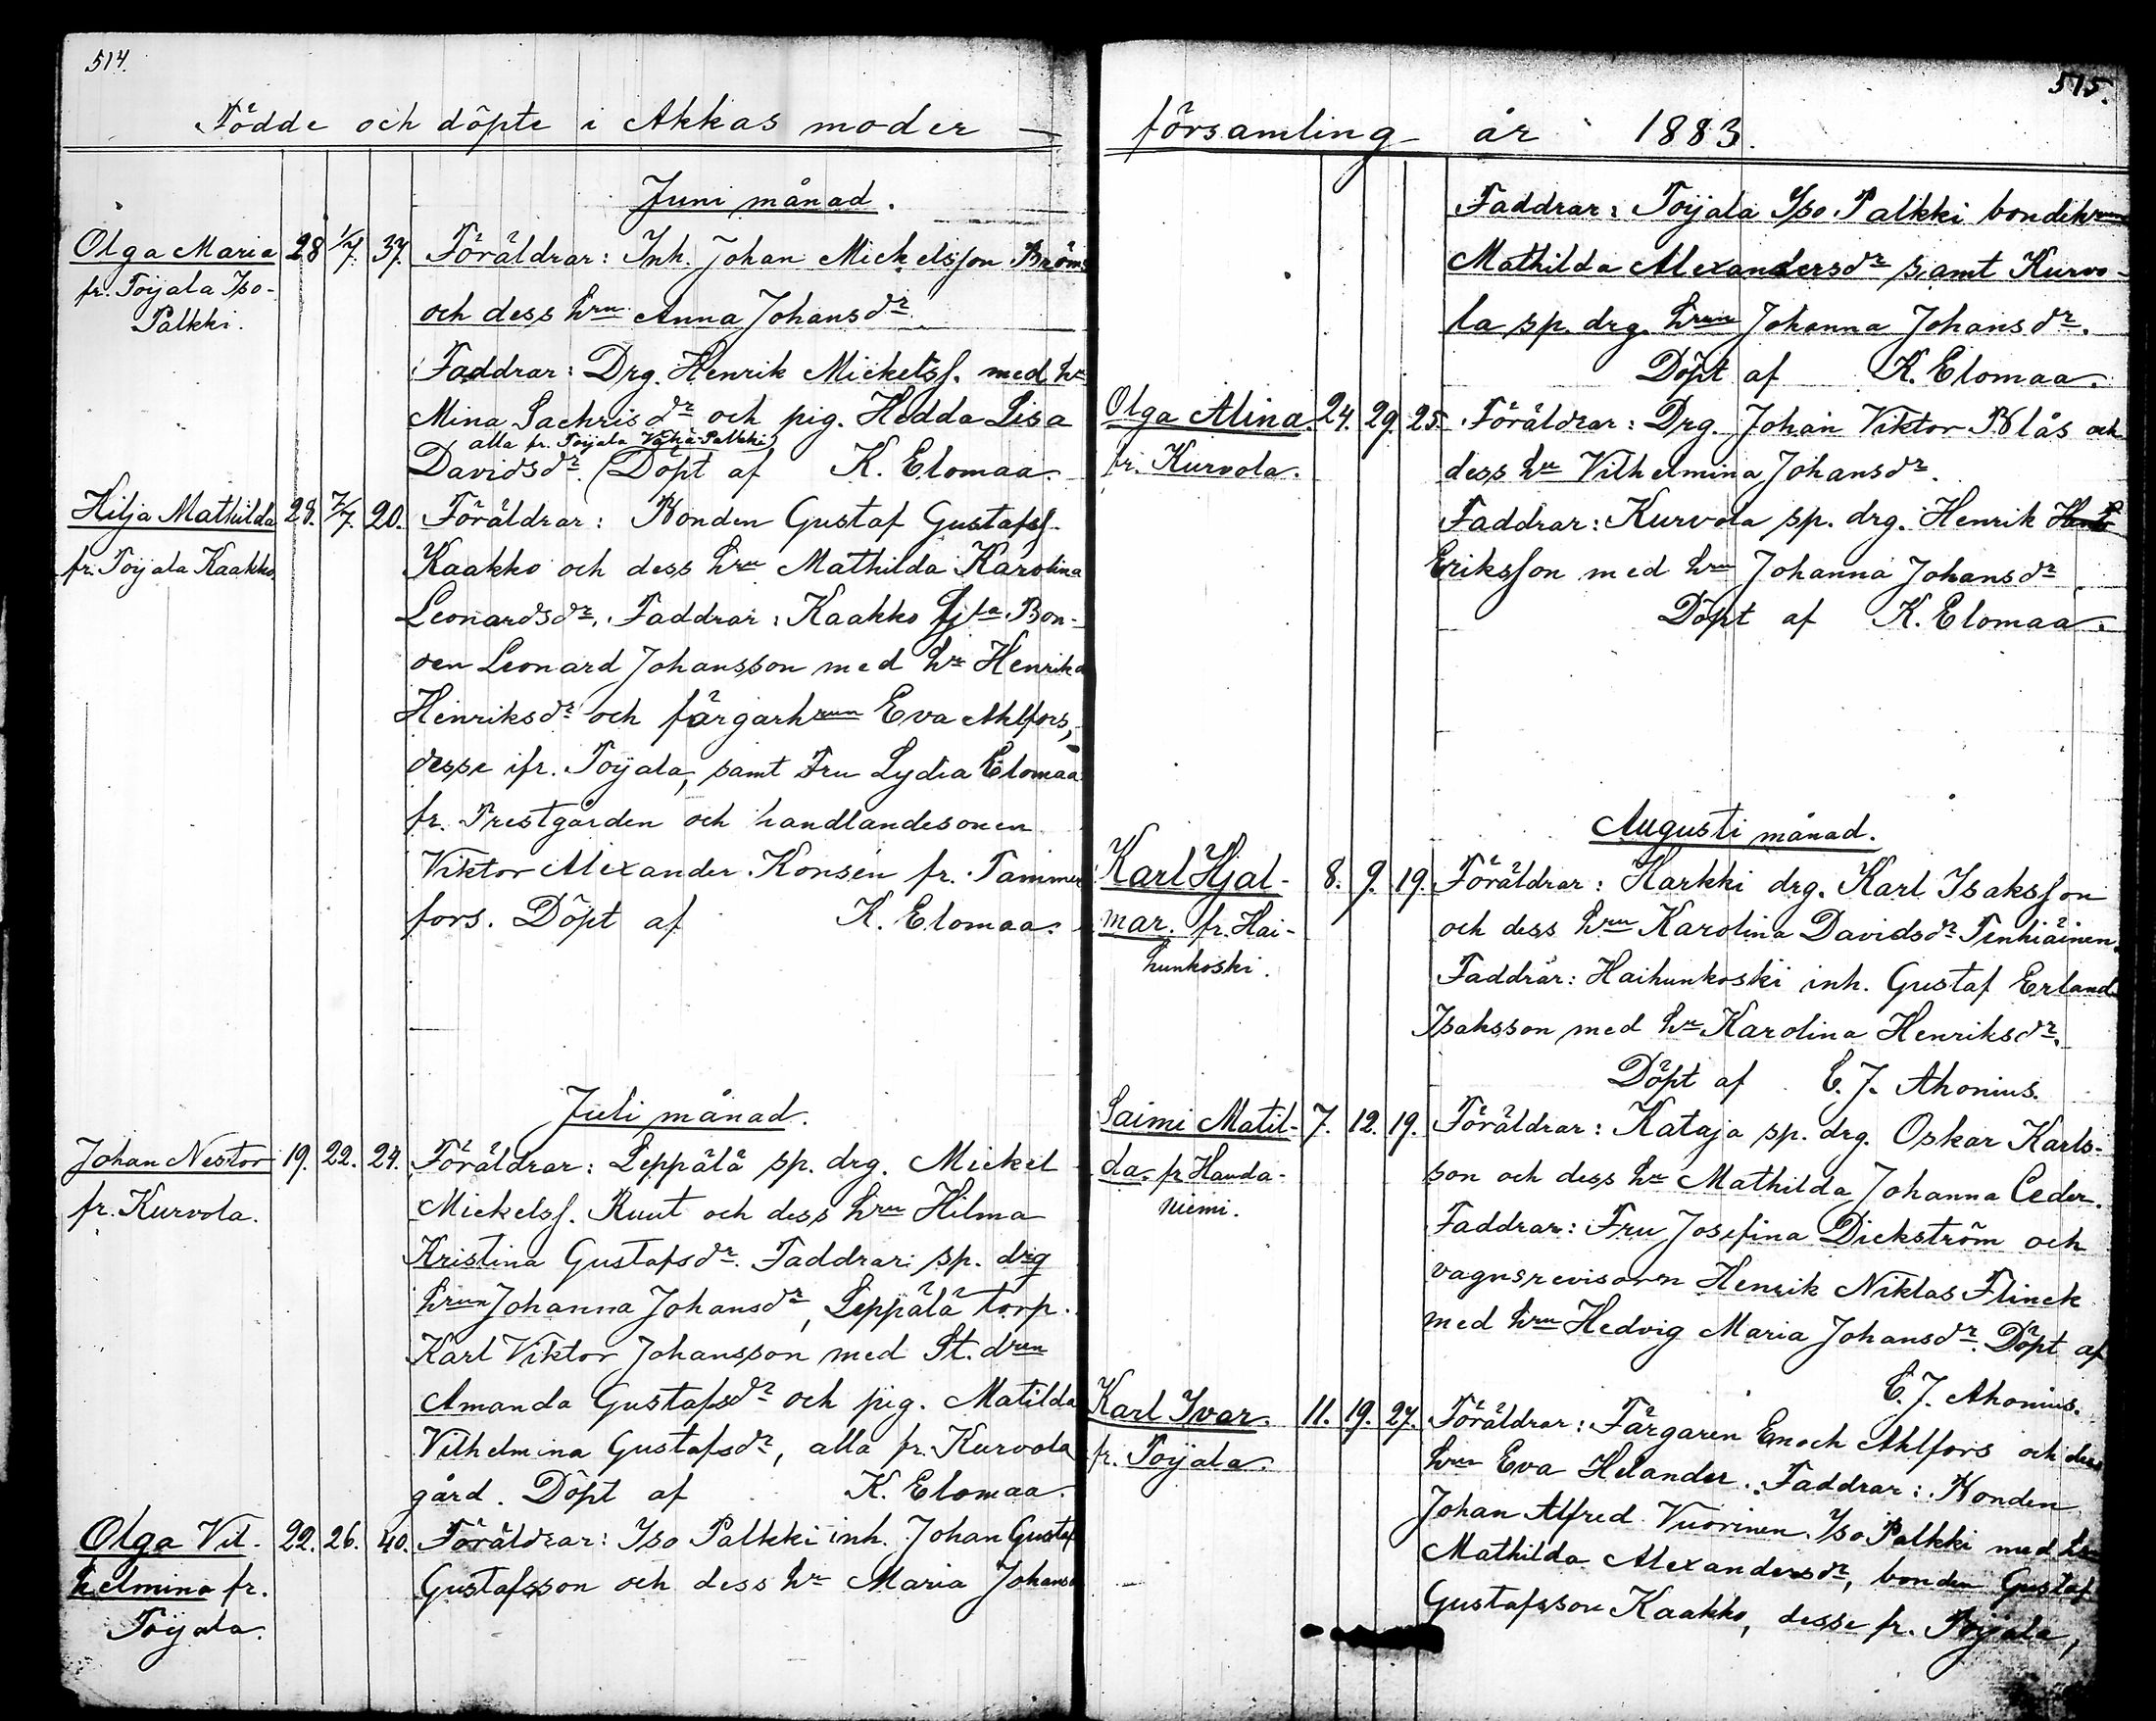 514.
Födde och döpte i Akkas moder -
Juni månad.
Olga Maria 28 1/7. 37. Föräldrar: Inh. Johan Mickelsson Bröms
fr. Toijala Iso-
Palkki.
och dess hru Anna Johansdr
Faddrar: Drg. Henrik Mickelss. med hr
Mina Sachrisdr och pig. Hedda Lisa
alla fr. Toijala Vähä-Palkki)
Davidsdr. (Döpt af K. Elomaa.
Hilja Mathilda 28. 7/7. 20. Föräldrar: Bonden Gustaf Gustafss.
fr. Toijala Kaakko.
Kaakko och dess hru Mathilda Karolina
Leonardsdr. Faddrar: Kaakko Bon-
den Leonard Johansson med hr Henrika
Henriksdr och färgarhrun Eva Ahlfors,
desse ifr. Toijala, samt Fru Lydia Elomaa
fr. Prestgården och handlandesonen
Viktor Alexander Konsén fr. Tammer
fors. Döpt af K. Elomaa.
Juli månad.
Johan Nestor 19. 22. 24. Föräldrar: Leppälä sp. drg. Mickel
fr. Kurvola.
Mickelss. Ruut och dess hru Hilma
Kristina Gustafsdr. Faddrar: sp. drg
hrun Johanna Johansdr, Leppälä torp.
Karl Viktor Johansson med St. drun
Amanda Gustafsdr och pig. Matilda
Vilhelmina Gustafsdr, alla fr. Kurvola
gård. Döpt af K. Elomaa.
Olga Vil- 22. 26. 40. Föräldrar: Iso Palkki inh. Johan Gustaf
helmina fr.
Toijala.
Gustafsson och dess hr Maria Johansd
515.
församling år 1883.
Faddrar: Toijala Iso Palkki bondehrun
Mathilda Alexandersdr samt Kurvo-
la sp. drg. hrun Johanna Johansdr.
Döpt af K. Elomaa.
Olga Alina 24. 29. 25. Föräldrar: Drg. Johan Viktor Blås och
fr. Kurvola.
dess hr Vilhelmina Johansdr.
Faddrar: Kurvola sp. drg. Henrik
Eriksson med hru Johanna Johansdr
Döpt af K. Elomaa.
Augusti månad.
Karl Hjal- 8. 9. 19. Föräldrar: Harkki drg. Karl Isaksson
mar. fr. Hai-
hunkoski.
och dess hru Karolina Davidsdr Tenhiäinen.
Faddrar: Haihunkoski inh. Gustaf Erland
Isaksson med hr Karolina Henriksdr.
Döpt af E. J. Ahonius.
Saimi Matil- 7. 12. 19. Föräldrar: Kataja sp. drg. Oskar Karls-
da. fr Hauda-
niemi.
son och dess hr Mathilda Johanna Ceder.
Faddrar: Fru Josefina Dickström och
vagnsrevisorn Henrik Niklas Flinck
med hru Hedvig Maria Johansdr. Döpt af
E. J. Ahonius.
Karl Ivar. 11. 19. 27. Föräldrar: Färgaren Enoch Ahlfors och dess
fr. Toijala.
hru Eva Helander. Faddrar: Bonden
Johan Alfred Vuorinen Iso Palkki med hr
Mathilda Alexandersdr, bonden Gustaf
Gustafsson Kaakko, desse fr. Toijala,